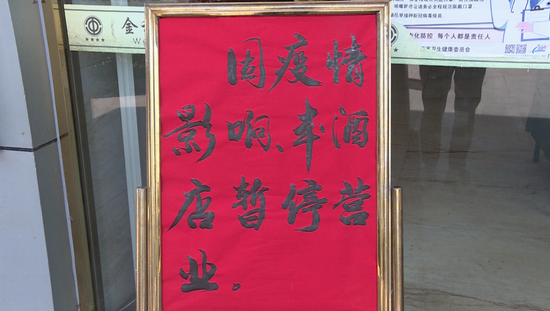 金
因疫情
影响、本酒
店暂停营
业。
化防控 每个人都是责任人
卫生健康委员会